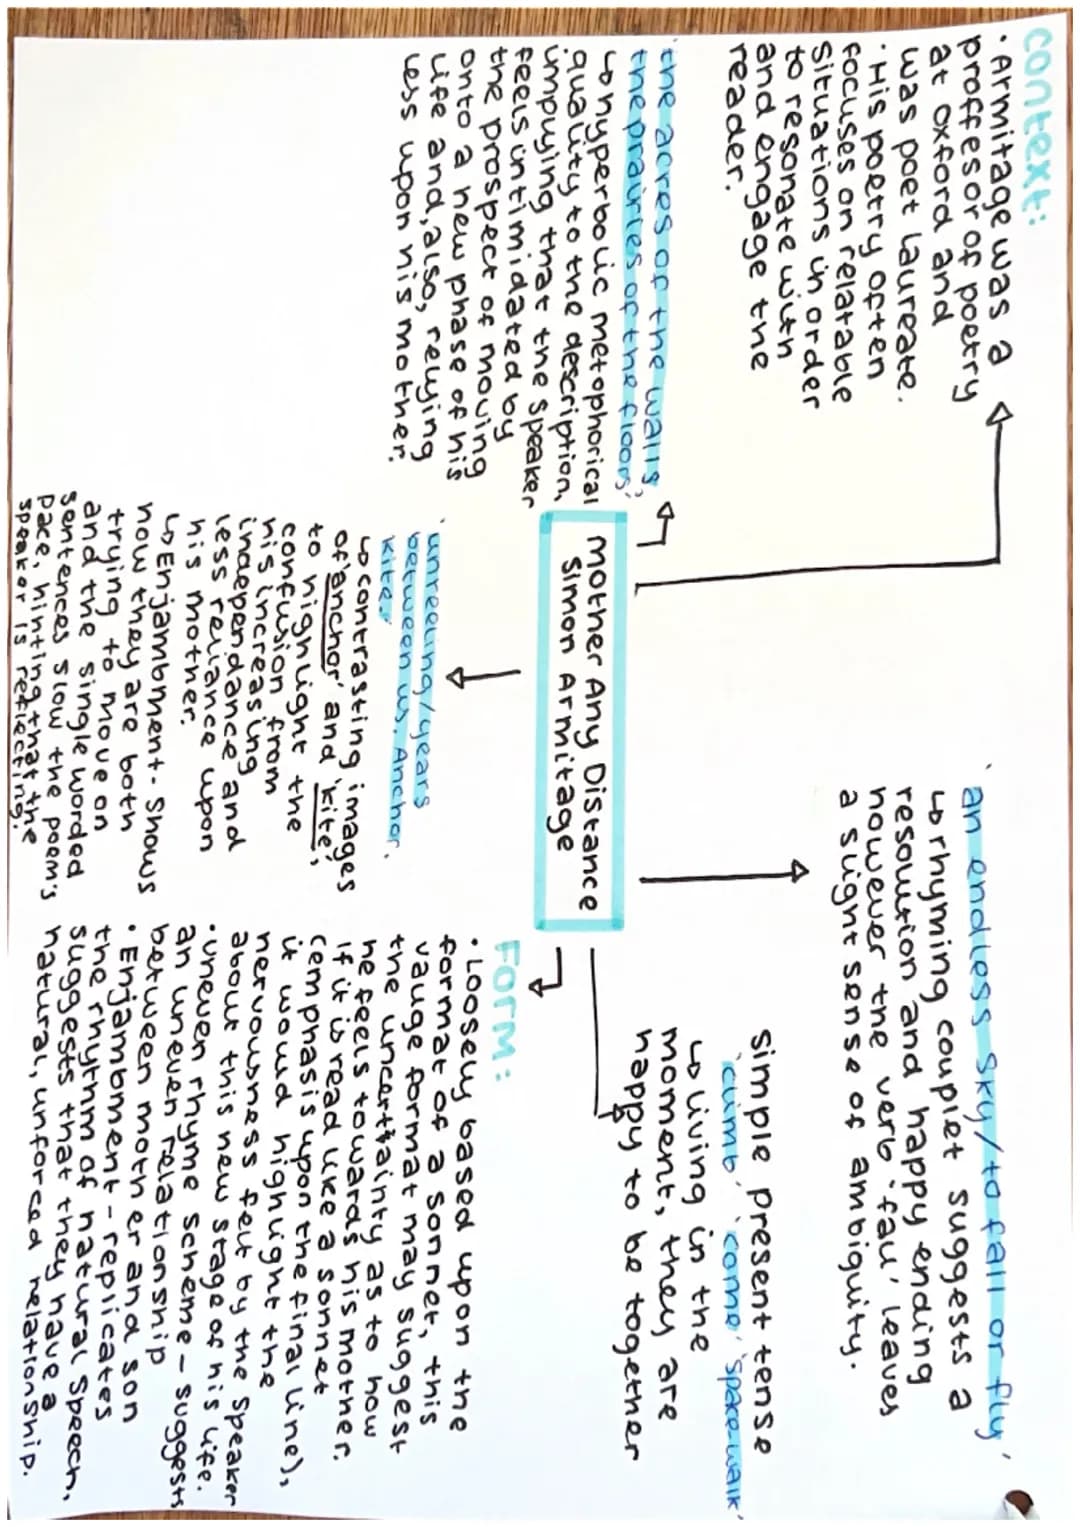 context:
• Armitage was a
proffesor of poetry
at oxford and
was poet laureate.
• His poetry often
focuses on relatable
situations in order
to resonate with
and engage the
reader.
'the acres of the walls,
the prairies of the floors'
↳ hyperbolic metophorical
quality to the description,
implying that the speaker
feels intimidated by
the prospect of moving
onto a new phase of his
life and, also, relying
less upon his mother.
'an endless sky/to fall or fly'
↳ rhyming couplet suggests a
resolution and happy ending
however the verb 'fall' leaves
a slight sense of ambiguity.
Mother Any Distance
Simon Armitage
simple present tense
'climb' 'come' 'space-walk'
↳ living in the
moment, they are
happy to be together
'unreeling/years
between us. Anchor.
kite.'
↳ contrasting images
of 'anchor' and 'kite',
to highlight the
confusion from
his increasing
independance and
less reliance upon
his mother.
↳ Enjambment - shows
how they are both
trying to move on
and the single worded
sentences slow the poem's
pace, hinting that the
speaker is reflecting.
FORM:
• Loosely based upon the
format of a sonnet, this
vauge format may suggest
the uncertainity as to how
he feels towards his mother.
If it is read like a sonnet
(emphasis upon the final line),
it would highlight the
nervousness felt by the speaker
about this new stage of his life.
• uneven rhyme scheme - suggests
an uneven relationship
between mother and son
• Enjambment - replicates
the rhythm of natural speech,
suggests that they have a
natural, unforced relationship.